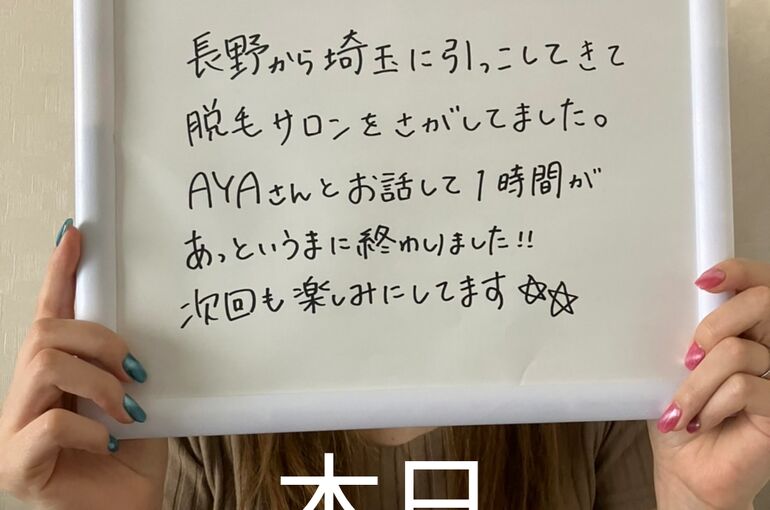 長野から埼玉に引っこしてきて
脱毛サロンをさがしてました。
AYAさんとお話して1時間が
あっというまに終わりました!!
次回も楽しみにしてます☆☆
本日